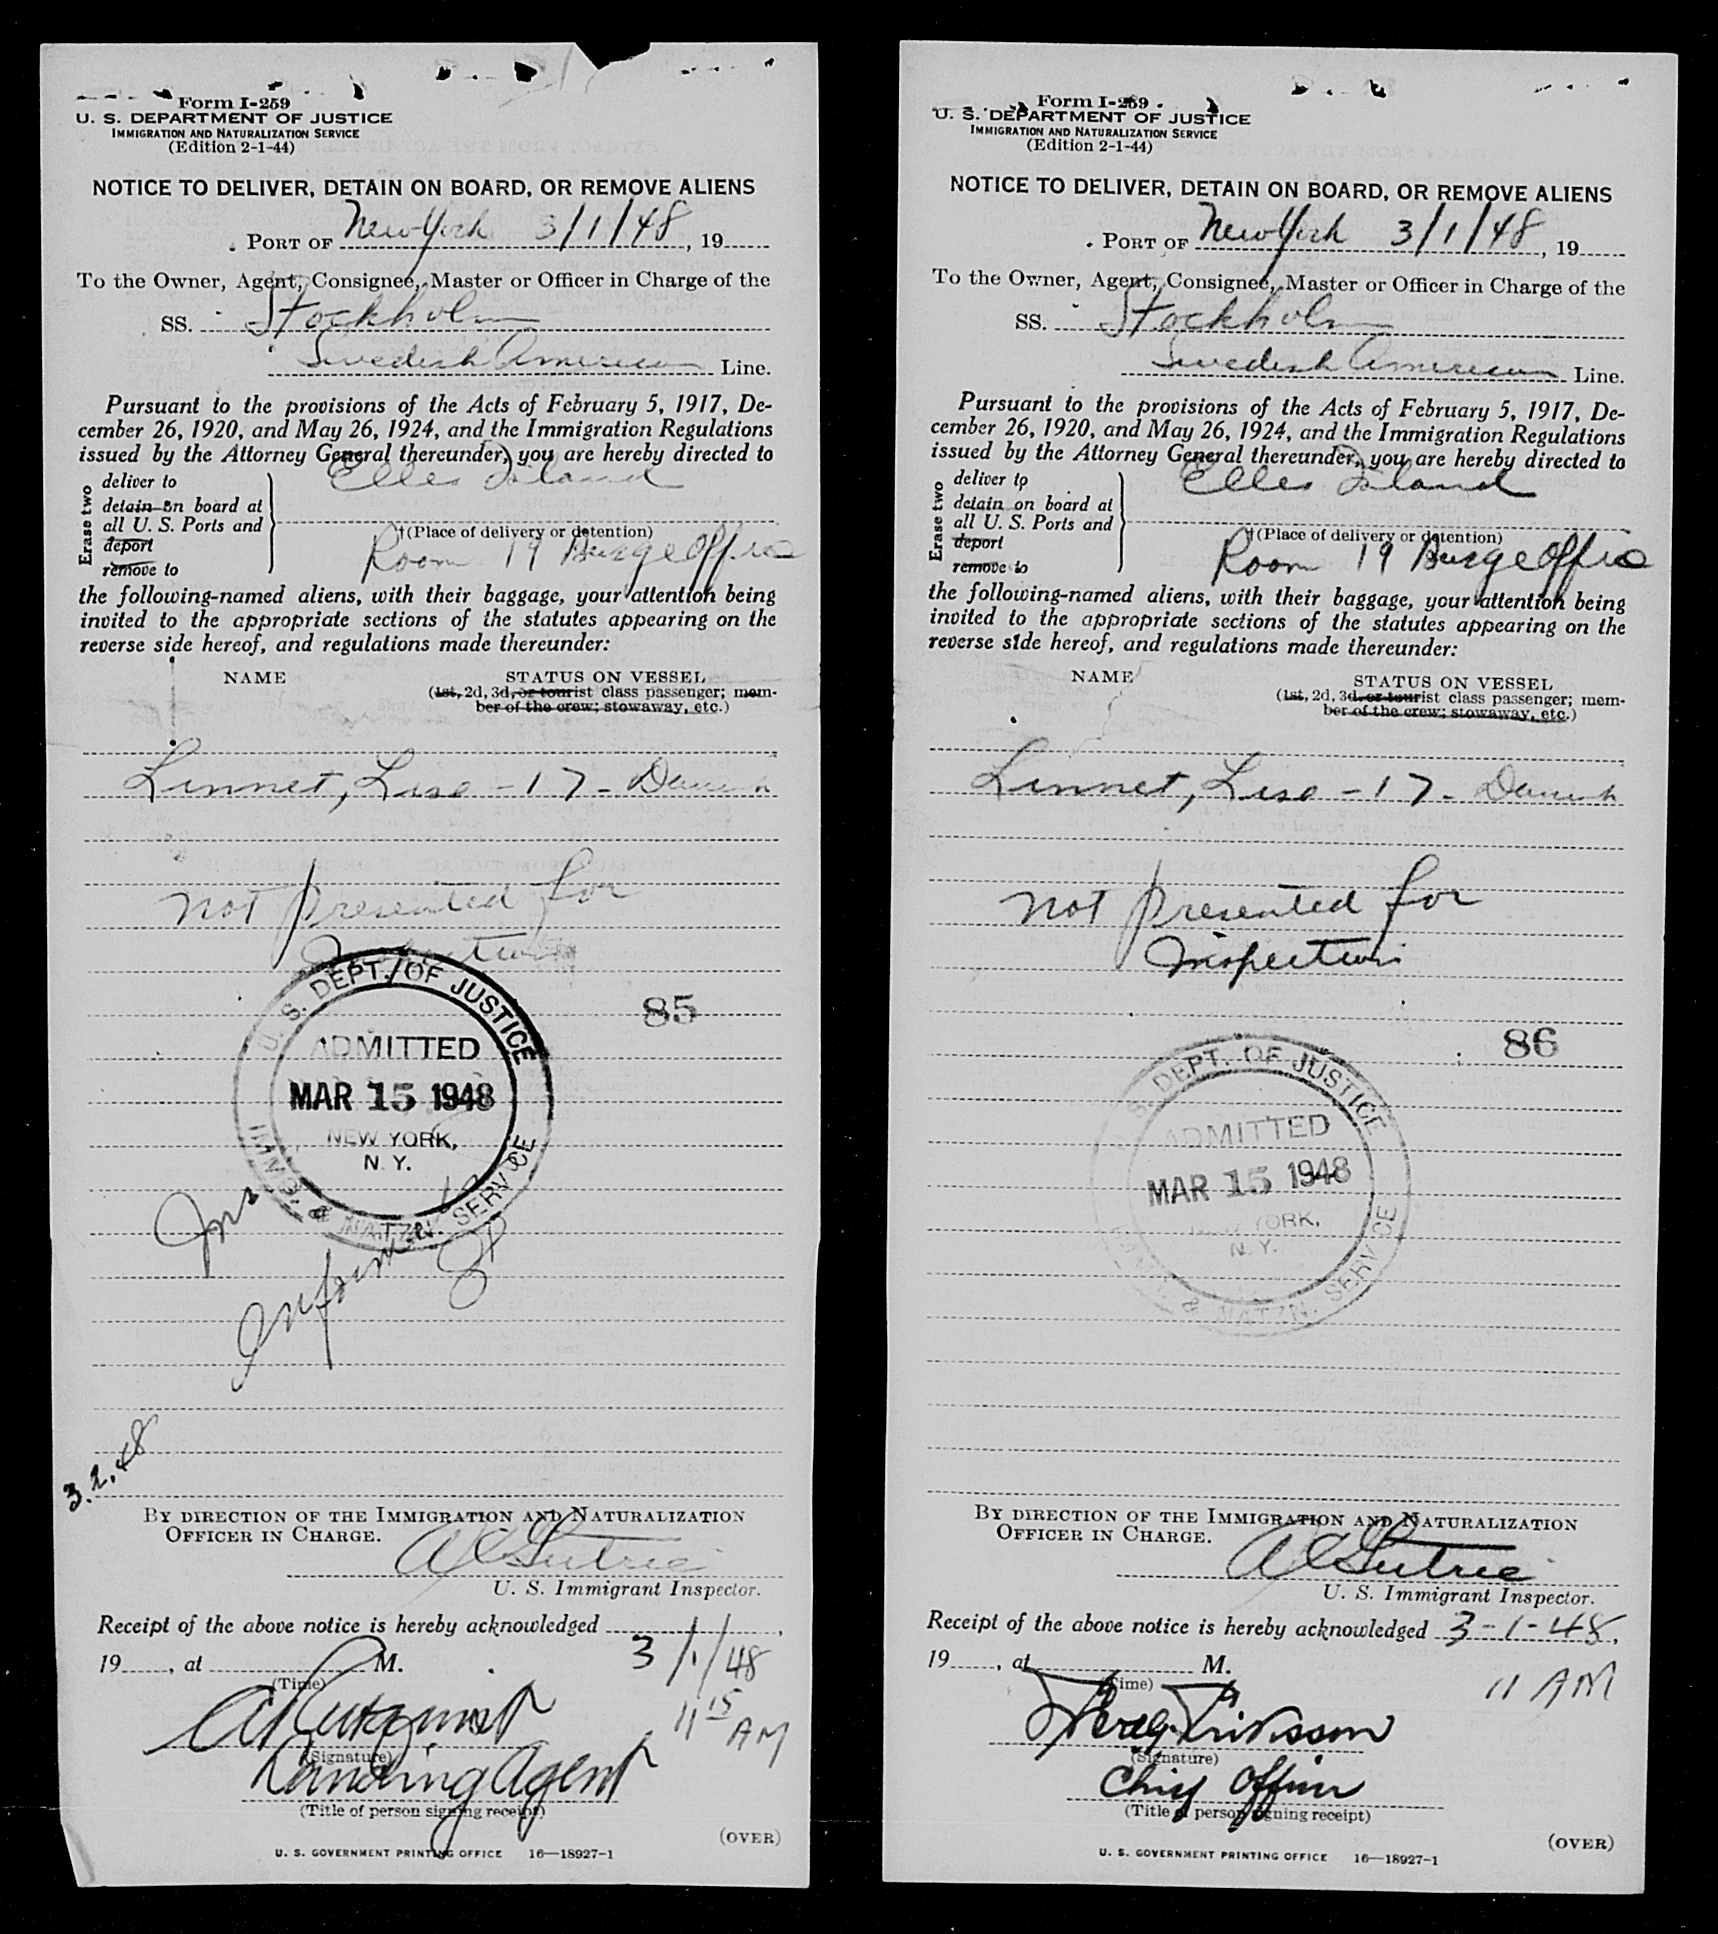 Form I-259
U. S. DEPARTMENT OF JUSTICE
IMMIGRATION AND NATURALIZATION SERVICE
(Edition 2-1-44)
NOTICE TO DELIVER, DETAIN ON BOARD, OR REMOVE ALIENS
PORT OF New York 3/1/48, 19
To the Owner, Agent, Consignee, Master or Officer in Charge of the
SS. Stockholm
Swedish American Line.
Pursuant to the provisions of the Acts of February 5, 1917, De-
cember 26, 1920, and May 26, 1924, and the Immigration Regulations
issued by the Attorney General thereunder, you are hereby directed to
Erase two
deliver to
detain on board at
all U. S. Ports and
deport
remove to
Elles Island
†(Place of delivery or detention)
Room 19 Barge Office
the following-named aliens, with their baggage, your attention being
invited to the appropriate sections of the statutes appearing on the
reverse side hereof, and regulations made thereunder:
NAME
STATUS ON VESSEL
(1st, 2d, 3d, or tourist class passenger; mem-
ber of the crew; stowaway, etc.)
Linnet, Lise - 17 - Danish
not presented for
Inspection
85
U. S. DEPT. OF JUSTICE
ADMITTED
MAR 15 1948
NEW YORK,
N. Y.
IMMN. & NATZN. SERVICE
3.2.48
BY DIRECTION OF THE IMMIGRATION AND NATURALIZATION
OFFICER IN CHARGE.
U. S. Immigrant Inspector.
Receipt of the above notice is hereby acknowledged
19, at M. 3/1/48
(Time)
11 15 AM
(Signature)
Landing Agent
(Title of person signing receipt)
(OVER)
U. S. GOVERNMENT PRINTING OFFICE 16—18927-1
Form I-259
U. S. DEPARTMENT OF JUSTICE
IMMIGRATION AND NATURALIZATION SERVICE
(Edition 2-1-44)
NOTICE TO DELIVER, DETAIN ON BOARD, OR REMOVE ALIENS
PORT OF New York 3/1/48, 19
To the Owner, Agent, Consignee, Master or Officer in Charge of the
SS. Stockholm
Swedish American Line.
Pursuant to the provisions of the Acts of February 5, 1917, De-
cember 26, 1920, and May 26, 1924, and the Immigration Regulations
issued by the Attorney General thereunder, you are hereby directed to
Erase two
deliver to
detain on board at
all U. S. Ports and
deport
remove to
Elles Island
†(Place of delivery or detention)
Room 19 Barge Office
the following-named aliens, with their baggage, your attention being
invited to the appropriate sections of the statutes appearing on the
reverse side hereof, and regulations made thereunder:
NAME
STATUS ON VESSEL
(1st, 2d, 3d, or tourist class passenger; mem-
ber of the crew; stowaway, etc.)
Linnet, Lise - 17 - Danish
not presented for
Inspection
86
S. DEPT. OF JUSTICE
ADMITTED
MAR 15 1948
NEW YORK,
N. Y.
& NATZN. SERVICE
BY DIRECTION OF THE IMMIGRATION AND NATURALIZATION
OFFICER IN CHARGE.
U. S. Immigrant Inspector.
Receipt of the above notice is hereby acknowledged 3-1-48,
19, at M.
(Time)
11 AM
Eriksson
(Signature)
Chief Officer
(Title of person signing receipt)
(OVER)
U. S. GOVERNMENT PRINTING OFFICE 16—18927-1